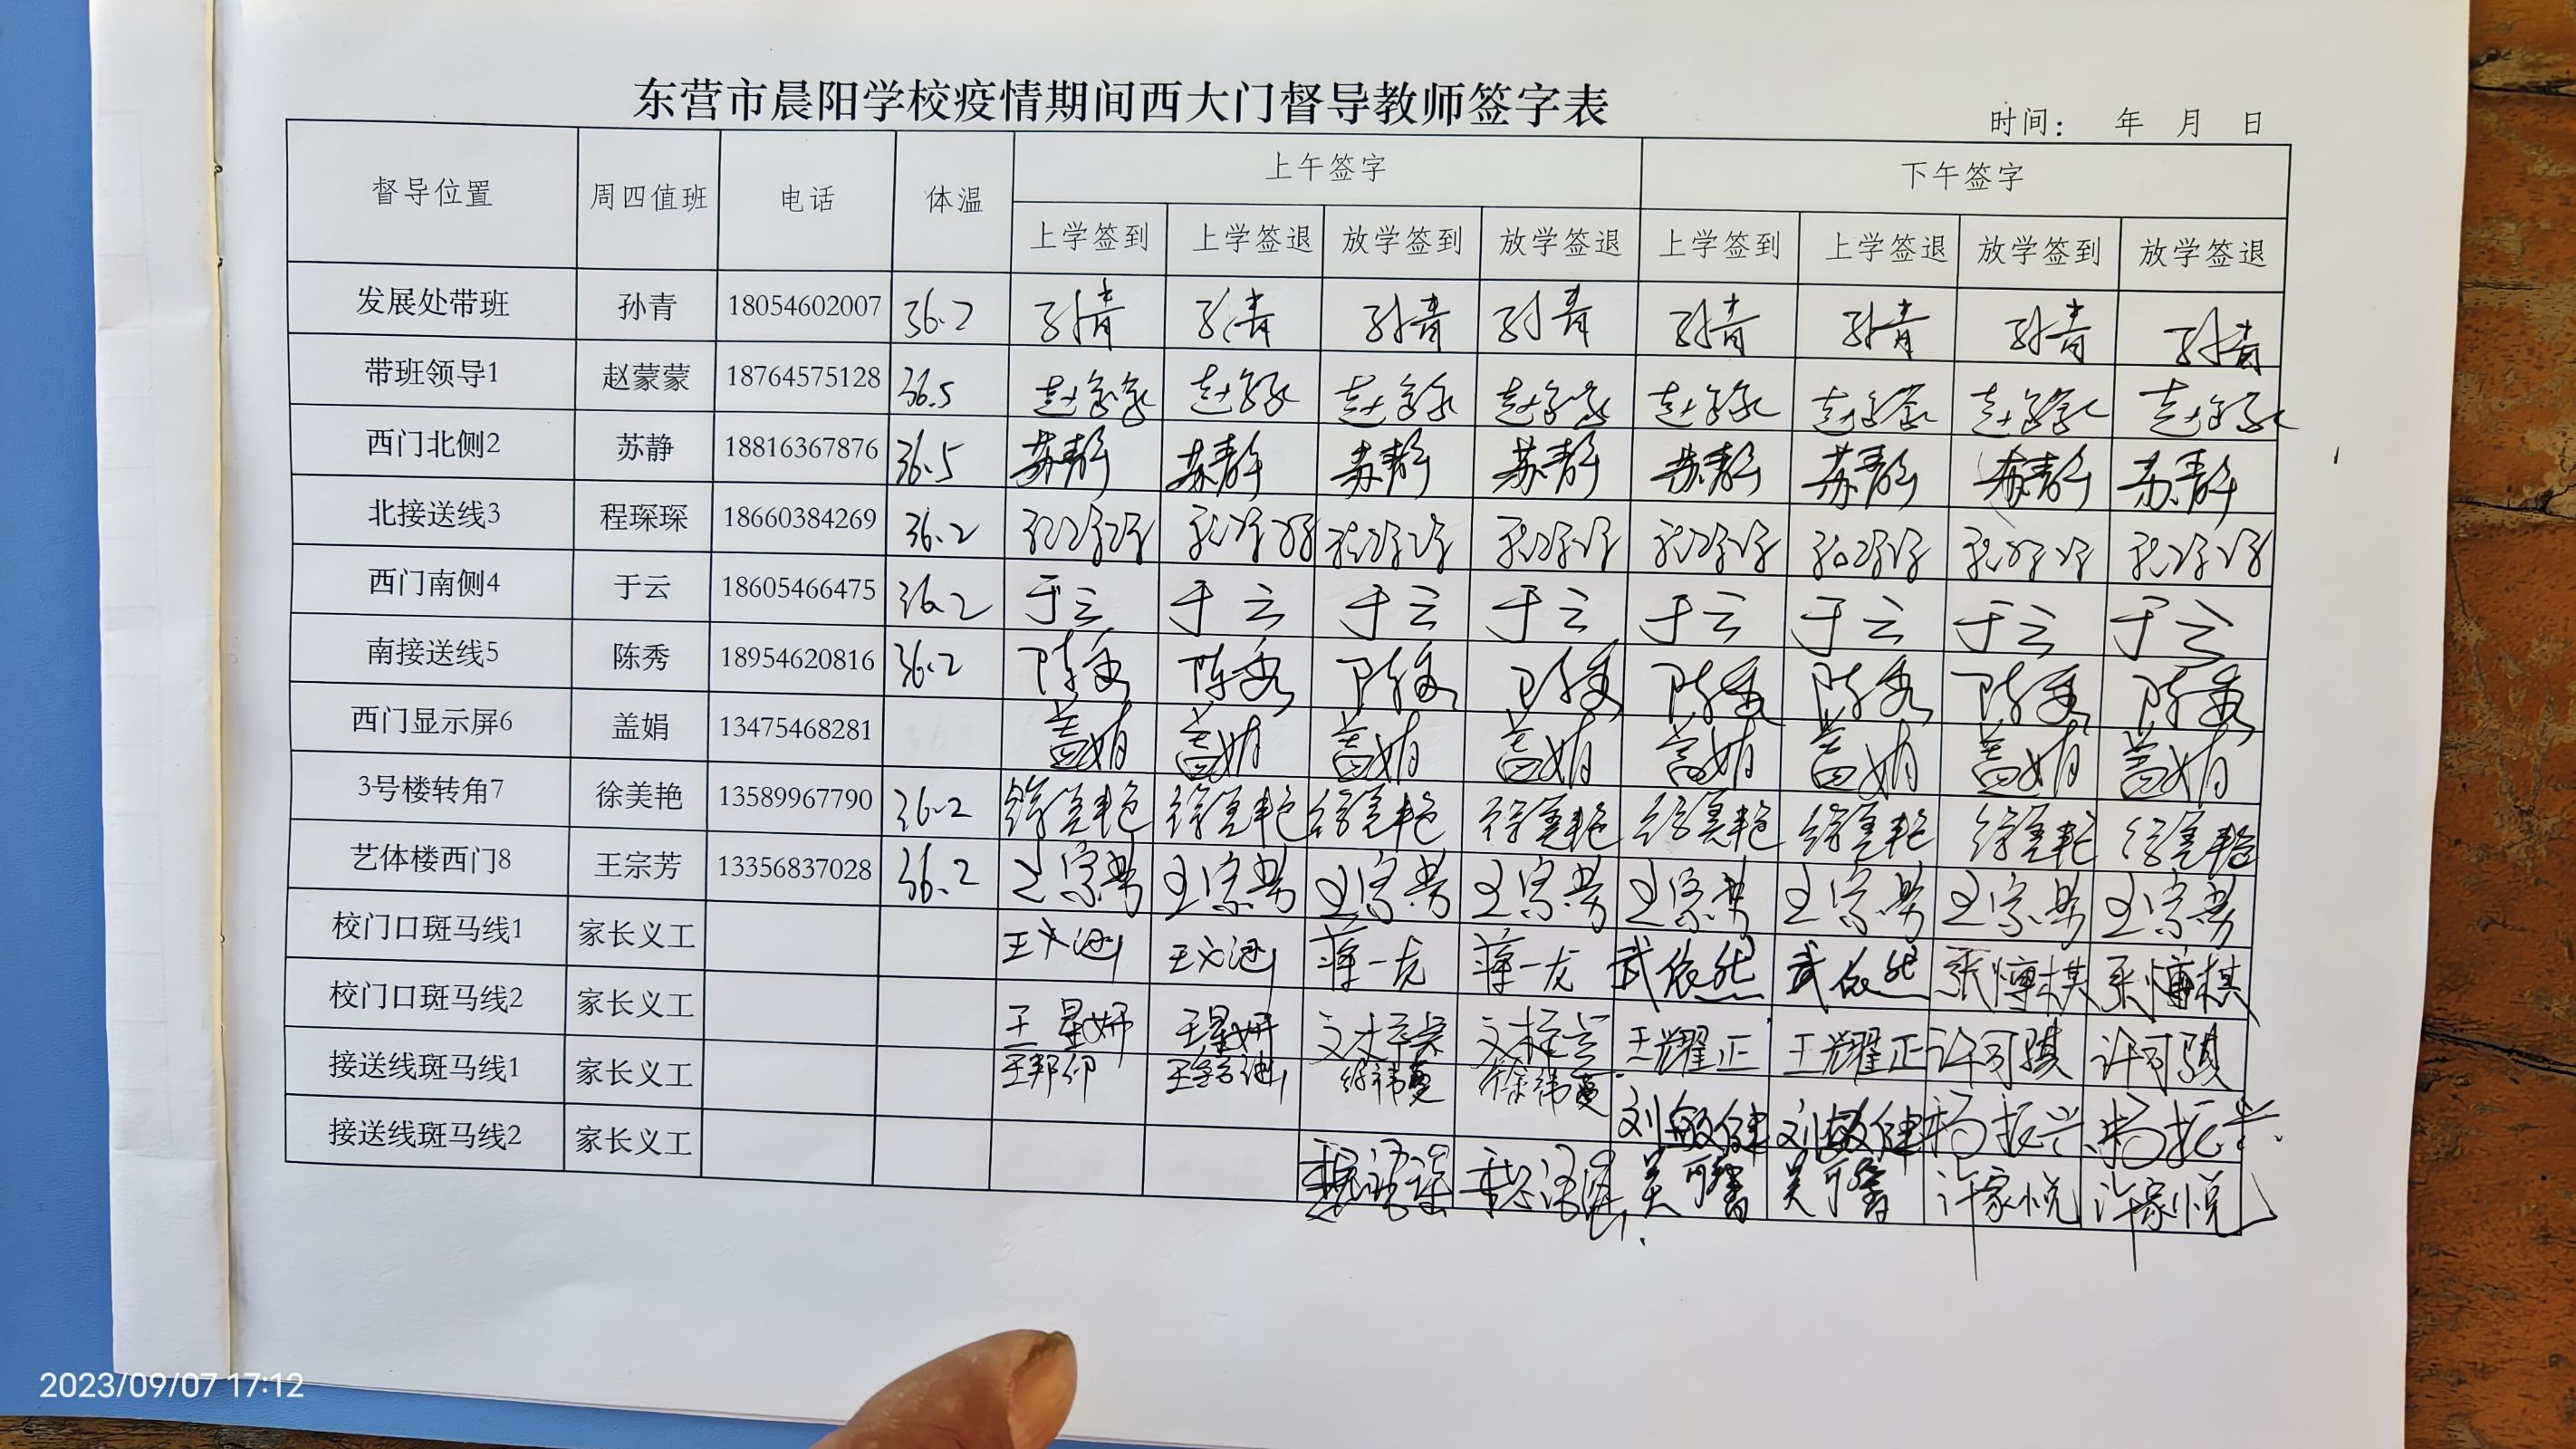 东营市晨阳学校疫情期间西大门督导教师签字表
时间： 年 月 日
督导位置 周四值班 电话 体温 上午签字 下午签字
上学签到 上学签退 放学签到 放学签退 上学签到 上学签退 放学签到 放学签退
发展处带班 孙青 18054602007 36.2 孙青 孙青 孙青 孙青 孙青 孙青 孙青 孙青
带班领导1 赵蒙蒙 18764575128 36.5 赵蒙蒙 赵蒙蒙 赵蒙蒙 赵蒙蒙 赵蒙蒙 赵蒙蒙 赵蒙蒙 赵蒙蒙
西门北侧2 苏静 18816367876 36.5 苏静 苏静 苏静 苏静 苏静 苏静 苏静 苏静
北接送线3 程琛琛 18660384269 36.2 程琛琛 程琛琛 程琛琛 程琛琛 程琛琛 程琛琛 程琛琛 程琛琛
西门南侧4 于云 18605466475 36.2 于云 于云 于云 于云 于云 于云 于云 于云
南接送线5 陈秀 18954620816 36.2 陈秀 陈秀 陈秀 陈秀 陈秀 陈秀 陈秀 陈秀
西门显示屏6 盖娟 13475468281 盖娟 盖娟 盖娟 盖娟 盖娟 盖娟 盖娟 盖娟
3号楼转角7 徐美艳 13589967790 36.2 徐美艳 徐美艳 徐美艳 徐美艳 徐美艳 徐美艳 徐美艳 徐美艳
艺体楼西门8 王宗芳 13356837028 36.2 王宗芳 王宗芳 王宗芳 王宗芳 王宗芳 王宗芳 王宗芳 王宗芳
校门口斑马线1 家长义工 武依然 武依然 张博棋 张博棋
校门口斑马线2 家长义工 王星妍 王星妍 王耀正 王耀正 许可骐 许可骐
接送线斑马线1 家长义工 徐祎蔓 徐祎蔓 刘敏健 刘敏健 杨振兴 杨振兴
接送线斑马线2 家长义工 许家悦 许家悦
2023/09/07 17:12